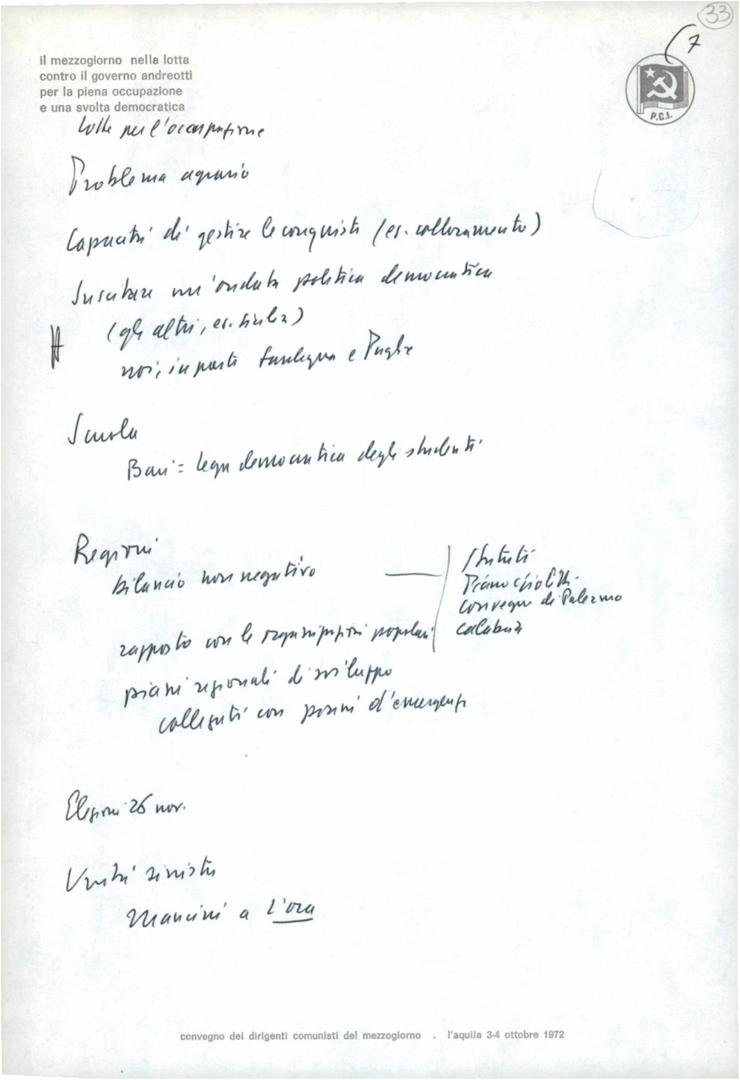 33
7
il mezzogiorno nella lotta
contro il governo andreotti
per la piena occupazione
e una svolta democratica
P.C.I.
lotte per l'occupazione
Problema agrario
Capacità di gestire le conquiste (es. collocamento)
Suscitare un'ondata politica democratica
(gli altri, es. Sicilia)
noi, in parte Sardegna e Puglia
Scuola
Bari = lega democratica degli studenti
Regioni
bilancio non negativo
Statuti
Piano
convegno di Palermo
Calabria
rapporto con le organizzazioni popolari
piani regionali di sviluppo
collegati con piani d'emergenza
Elezioni 26 nov.
Unità sinistra
Mancini a L'ora
convegno dei dirigenti comunisti del mezzogiorno . l'aquila 3-4 ottobre 1972